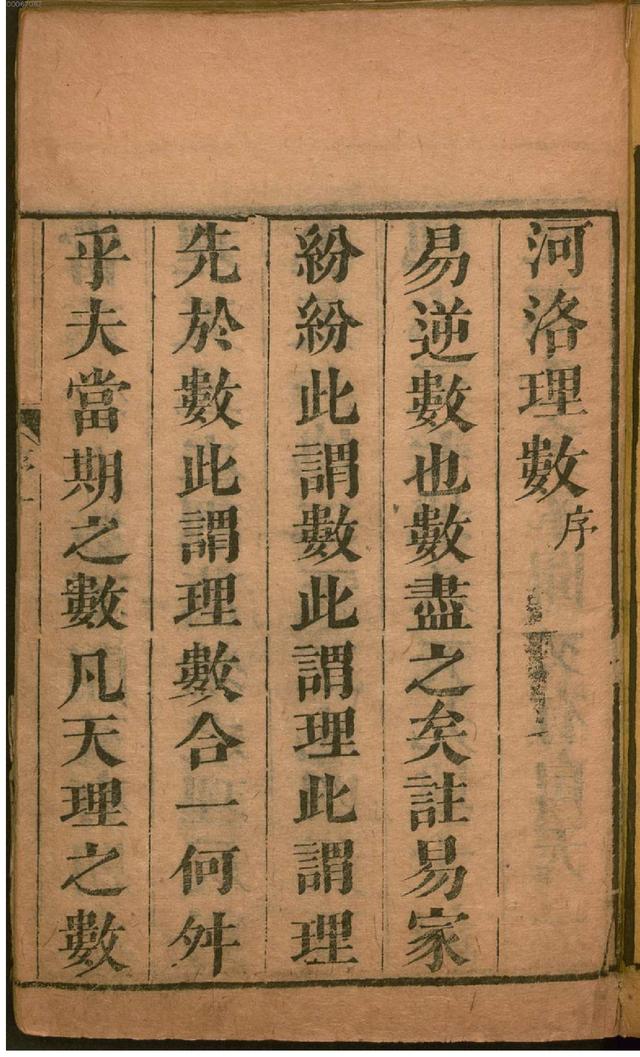 河洛理數序
易逆數也數盡之矣註易家
紛紛此謂數此謂理此謂理
先於數此謂理數合一何舛
乎夫當期之數凡天理之數
序一